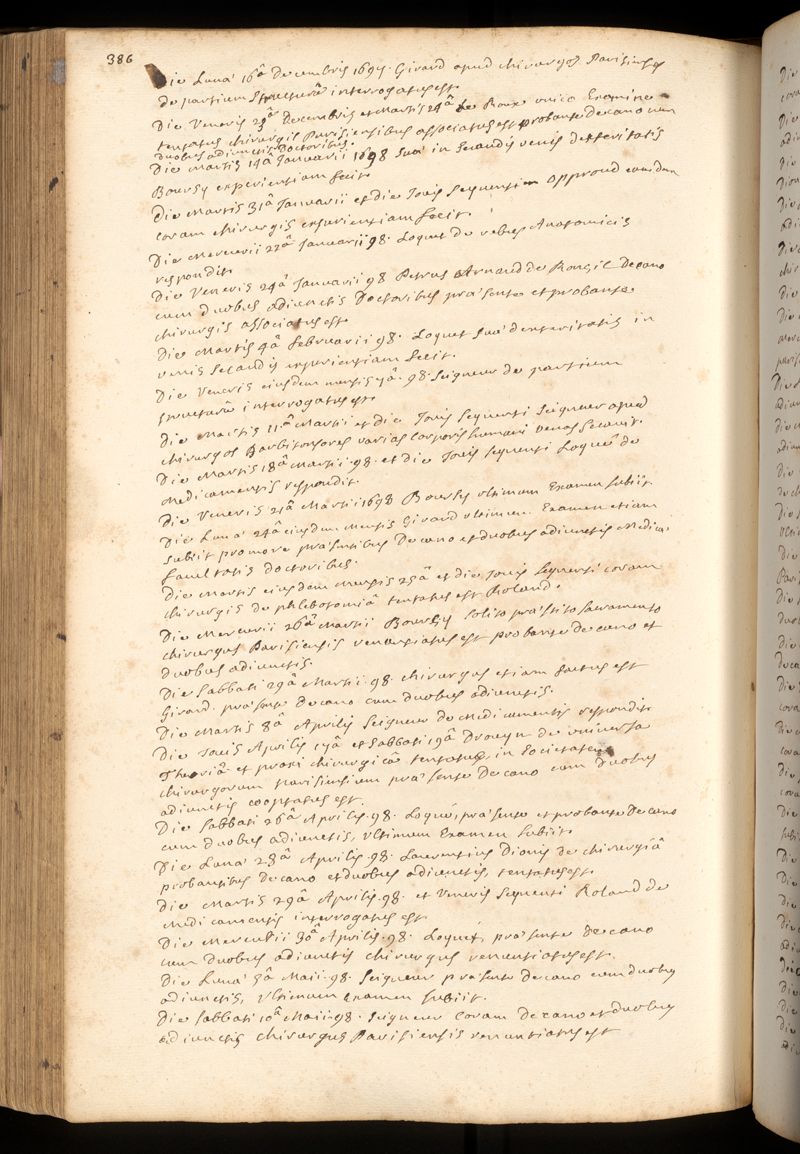 386
Die Lunæ 16â Decembris 1697. Girard apud chirurgos Parisinses
de partium structurâ interrogatus est.
Die Veneris Decembris et Martis 24â de Roux unico Examine
tentatus chirurgis Parisiensibus associatus est probante decano cum
duobus adiunctis Doctoribus.
Die Martis 14â Januarii 1698 suæ in secandis venis dexteritatis
Boursy experientiam fecit.
Die Martis 31â Januarii et die Jovis sequenti
coram chirurgis experientiam fecit.
Die Mercurii 22â Januarii 98. Loquet de rebus Anatomicis
respondit.
Die Veneris 24â Januarii 98 Petrus Arnaud de Decano
cum duobus adiunctis Doctoribus præsente et probante
chirurgis associatus est.
Die Martis 4â februarii 98. Loquet suæ dexteritatis in
venis secandis experientiam fecit.
Die Veneris eiusdem mensis 7â. 98. Seigneur de partium
structurâ interrogatus est.
Die Martis 11â Martii et die Jovis sequenti Seigneur apud
chirurgos Barbitonsores varias corporis humani venas secuit.
Die Martis 18â Martii. 98. et die Jovis sequenti Loqué de
Medicamentis respondit.
Die Veneris 21â Martii 1698 Boursy ultimum Examen subiit.
Die Lunæ 24â eiusdem mensis Girard ultimum Examen etiam
subiit promore præsentibus Decano et duobus adiunctis Medicæ
facultatis doctoribus.
Die Martis eiusdem mensis 25â et die Jovis sequenti coram
chirurgis de phlebotomiâ tentatus est Roland.
Die Mercurii 26â Martii Boursy solito præstito sacramento
chirurgus Parisiensis renuntiatus est probante decano et
duobus adiunctis.
Die Sabbati 29â Martii. 98. chirurgus etiam factus est
Girard. præsente decano cum duobus adiunctis.
Die Martis 8â Aprilis Seigneur de Medicamentis respondit
Die Jovis Aprilis 17â et Sabbati 19â Drouyn de universa
Theoriâ et praxi chirurgicâ tentatus, in societatem
chirurgorum Parisiensium præsente Decano cum duobus
adiunctis cooptatus est.
Die Sabbati 26â Aprilis. 98. Loqué, præsente et probante Decano
cum duobus adiunctis, ultimum Examen subiit.
Die Lunæ 28â Aprilis. 98. Laurentius Dionis de chirurgiâ
probantibus Decano et duobus adiunctis, tentatus est.
Die Martis 29â Aprilis. 98. et Veneris sequenti Roland de
medicamentis interrogatus est.
Die Mercurii 30â Aprilis. 98. Loquet, præsente Decano
cum duobus adiunctis chirurgus renuntiatus est.
Die Lunæ 5â Maii. 98. Seigneur præsente decano cum duobus
adiunctis, ultimum Examen subiit.
Die Sabbati 10â Maii. 98. Seigneur coram Decano et duobus
adiunctis chirurgus Parisiensis renuntiatus est